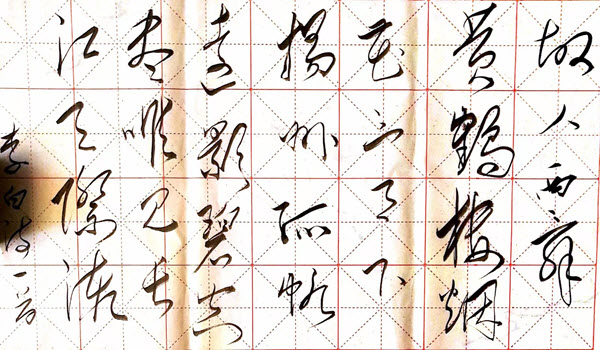 故人西辞
黄鶴楼烟
花三月下
揚州孤帆
远影碧空
尽唯见长
江天際流
李白诗一首